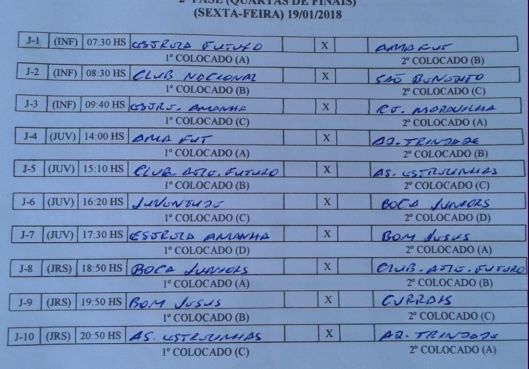 2ª FASE (QUARTAS DE FINAIS)
(SEXTA-FEIRA) 19/01/2018
J-1 (INF) 07:30 HS ESTRELA FUTURO X AMA FUT
1º COLOCADO (A) 2º COLOCADO (B)
J-2 (INF) 08:30 HS CLUB NACIONAL X SÃO BENEDITO
1º COLOCADO (B) 2º COLOCADO (C)
J-3 (INF) 09:40 HS ESTRE. AMANHA X MARAVILHA
1º COLOCADO (C) 2º COLOCADO (A)
J-4 (JUV) 14:00 HS AMA FUT X A2. TRINDADE
1º COLOCADO (A) 2º COLOCADO (B)
J-5 (JUV) 15:10 HS CLUB. ATLE. FUTURO X AS. ESTRELINHAS
1º COLOCADO (B) 2º COLOCADO (C)
J-6 (JUV) 16:20 HS JUVENTUDE X BOCA JUNIORS
1º COLOCADO (C) 2º COLOCADO (D)
J-7 (JUV) 17:30 HS ESTRELA AMANHA X BOM JESUS
1º COLOCADO (D) 2º COLOCADO (A)
J-8 (JRS) 18:50 HS BOCA JUNIORS X CLUB. ATLE. FUTURO
1º COLOCADO (A) 2º COLOCADO (B)
J-9 (JRS) 19:50 HS BOM JESUS X CURRAIS
1º COLOCADO (B) 2º COLOCADO (C)
J-10 (JRS) 20:50 HS AS. ESTRELINHAS X A2. TRINDADE
1º COLOCADO (C) 2º COLOCADO (A)